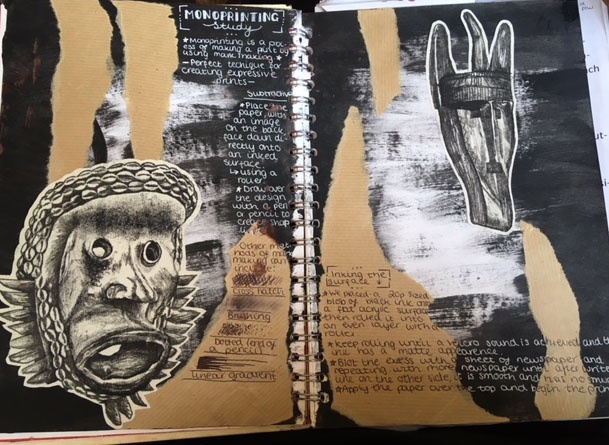 MONOPRINTING
study
★ Monoprinting is a proc
ess of making a print by
using mark making ★
- Perfect technique for
creating expressive
prints -
Subtractive
★ Place the
paper with
an image
on the back
face down di
rectly onto
an inked
surface.
↳ using a
roller.
★ Draw over
the design
with a pen
or pencil to
create sharp
lines
Other met
hods of mark
making can
include:
Cross hatch
Brushing
Dotted (end of
a pencil)
Linear gradient
Inking the
surface ↓
★ We placed a 20p sized
blob of black ink on
a flat acrylic surface
then rolled it into
an even layer with a
roller
★ Keep rolling until a velcro sound is achieved and the
ink has a matte appearence.
★ Blot the excess with sheet of newspaper and
repeating with more newspaper until after
ink on the other side, it is smooth and has no
★ Apply the paper over the top and begin the print